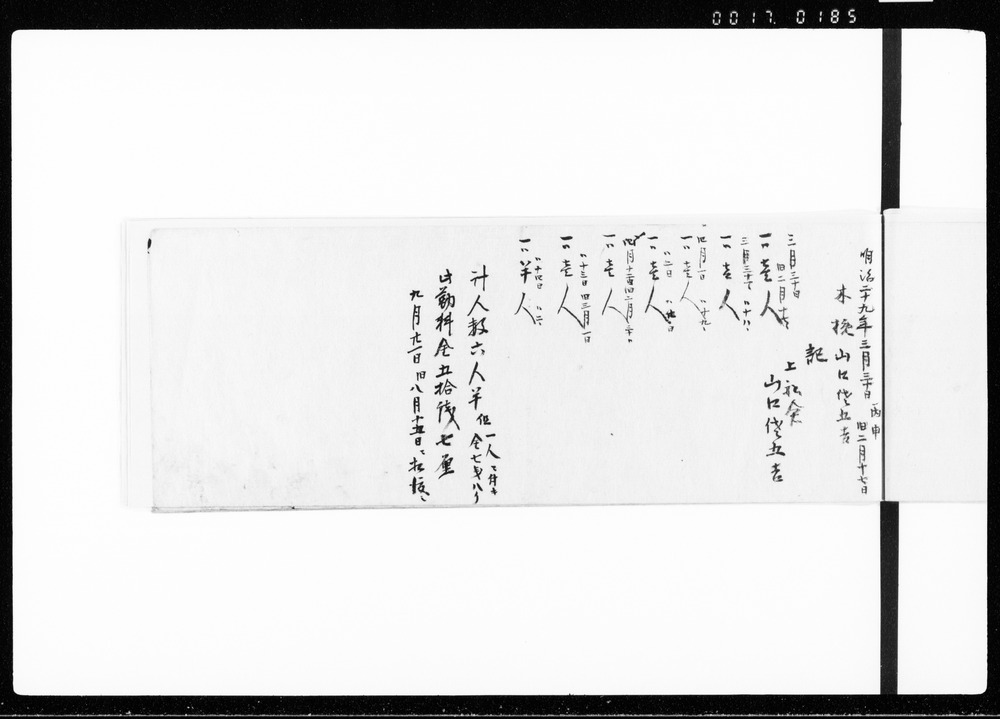 0017. 0185
明治二十九年三月三十日 丙申 旧二月十七日
木挽 山口 五吉
記
上 金
山口 五吉
三月三十日 旧二月
一〃壱人
三月三十 〃十八〃
一〃壱人
〃四月一日 〃十九〃
一〃壱人
〃二日 〃廿日
一〃壱人
四月十二日旧二月三十〃
一〃壱人
〃十三日 旧三月一日
一〃壱人
〃十四日 〃二〃
一〃半人
計人数六人半 但一人ニ付
金七 八
此勤料金五拾 七厘
九月廿一日旧八月十五日ニ払